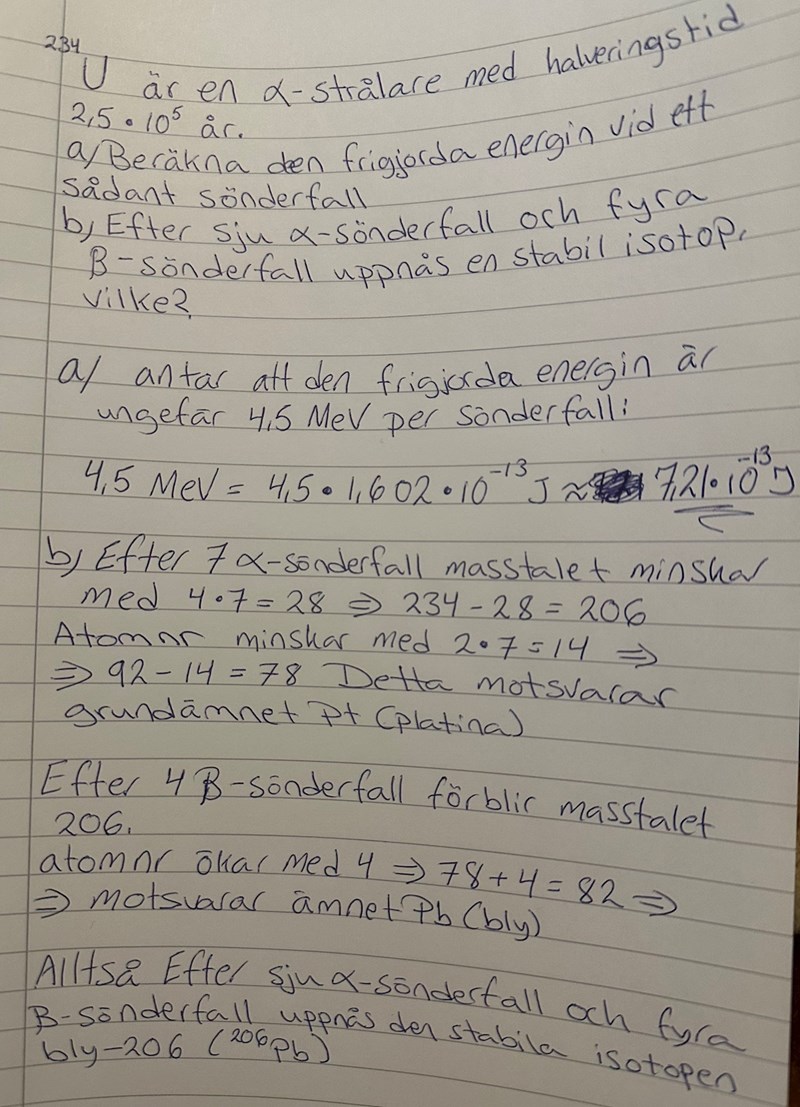 234
U är en α-strålare med halveringstid
2,5 • 10⁵ år.
a/ Beräkna den frigjorda energin vid ett
sådant sönderfall
b) Efter sju α-sönderfall och fyra
β-sönderfall uppnås en stabil isotop,
vilke?
a/ antar att den frigjorda energin är
ungefär 4,5 MeV per sönderfall:
4,5 MeV = 4,5 • 1,602 • 10⁻¹³ J ≈ 7,21 • 10⁻¹³ J
b) Efter 7 α-sönderfall masstalet minskar
med 4•7 = 28 ⇒ 234 - 28 = 206
Atomnr minskar med 2•7 = 14 ⇒
⇒ 92 - 14 = 78 Detta motsvarar
grundämnet Pt (platina)
Efter 4 β-sönderfall förblir masstalet
206.
atomnr ökar med 4 ⇒ 78 + 4 = 82 ⇒
⇒ motsvarar ämnet Pb (bly)
Alltså Efter sju α-sönderfall och fyra
β-sönderfall uppnås den stabila isotopen
bly-206 (²⁰⁶Pb)